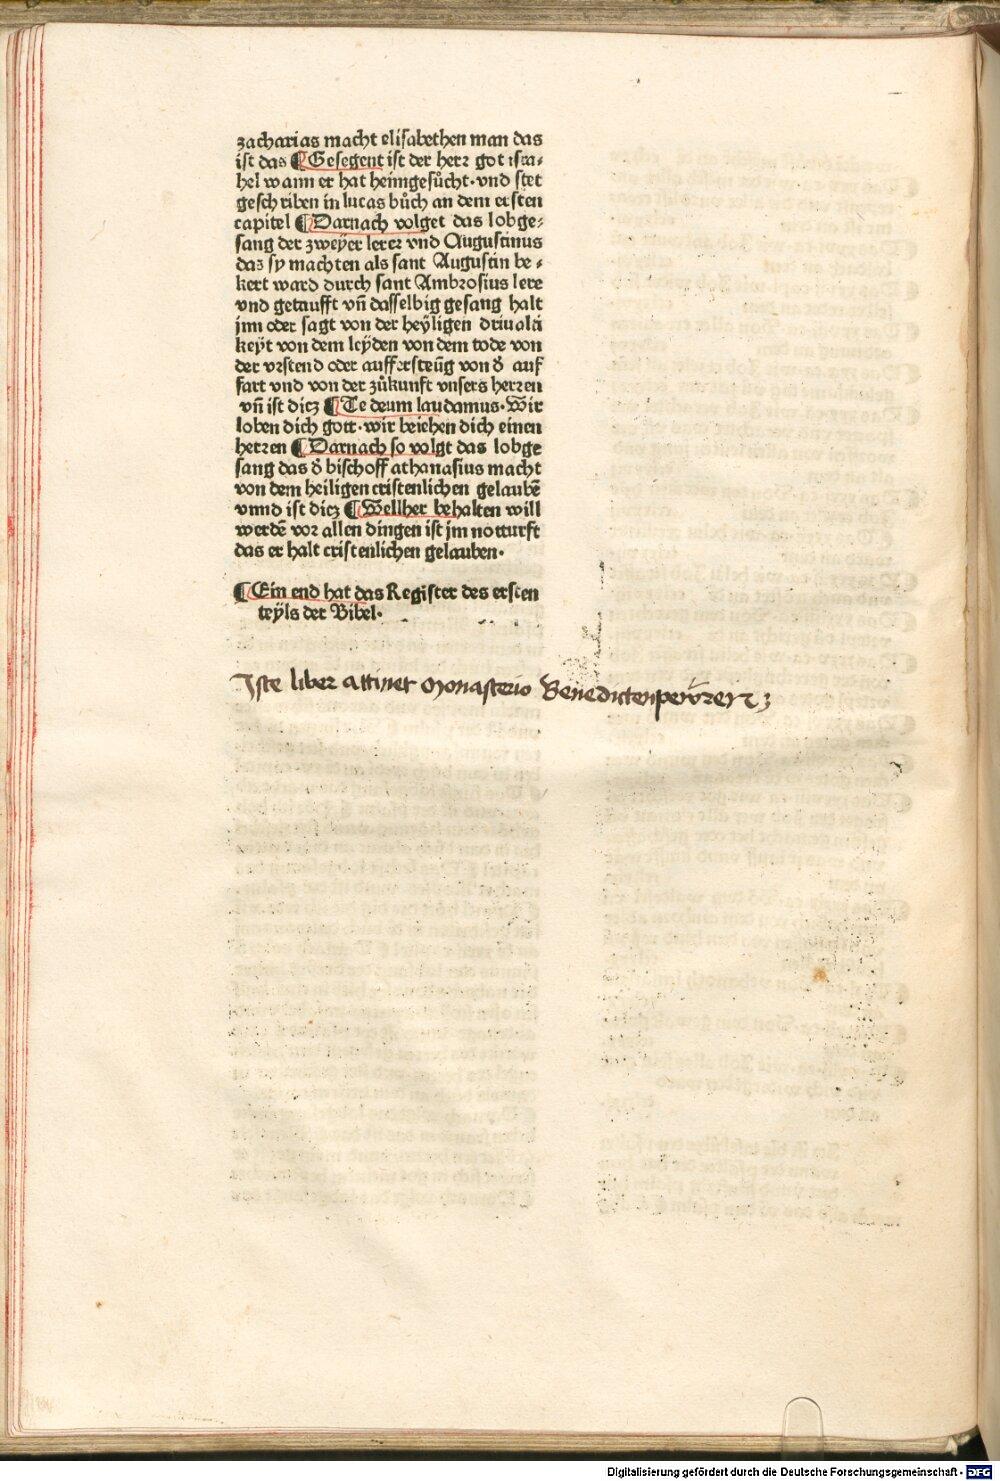 zacharias macht elisabethen man das
ist das ¶ Gesegent ist der herr got isra⸗
hel wann er hat heimgesůcht·vnd stet
geschriben in lucas bůch an dem ersten
capitel ¶ Darnach volget das lobge⸗
sang der zweyer lerer vnd Augustinus
das sy machten als sant Augustin be⸗
kert ward durch sant Ambrosius lere
vnd getaufft vn̄ dasselbig gesang halt
jnn oder sagt von der heyligen driualti
keyt von dem leyden von dem tode von
der vrstend oder auffersteūg von d̓ auf
fart vnd von der zůkunft vnsers herren
vn̄ ist dicz ¶ Te deum laudamus·Wir
loben dich gott·wir veiehen dich einen
herren ¶ Darnach so volgt das lobge
sang das d̓ bischoff athanasius macht
von dem heiligen cristenlichen gelaubē
vnnd ist dicz ¶ Wellher behalten will
werdē vor allen dingen ist jm notturft
das er halt cristenlichen gelauben·
¶ Ein end hat das Register des ersten
teyls der Bibel·
Iste liber attinet monasterio
Digitalisierung gefördert durch die Deutsche Forschungsgemeinschaft - DFG